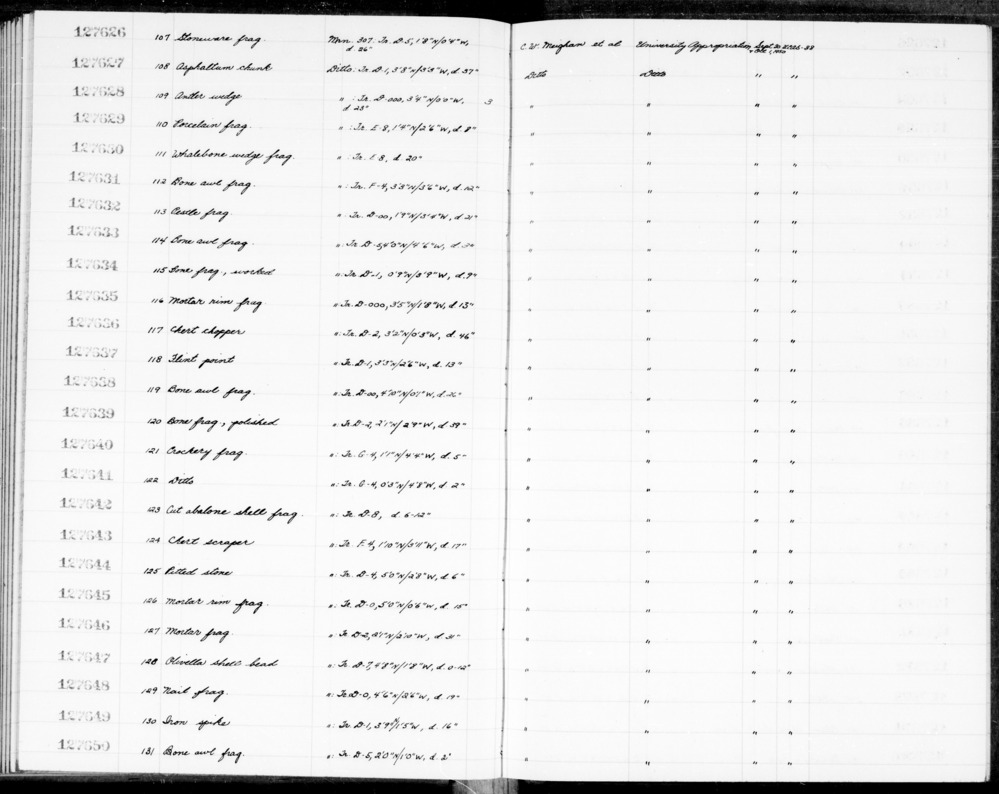 127626 107 Stoneware frag. Mrn. 307. Tr. D-5, 1'8"N/0'4"W, d. 26" C.W. Meighan et al University Appropriation Sept.
127627 108 Asphaltum chunk Ditto: Tr. D-1, 3'8"N/3'3"W, d. 37" Ditto Ditto " "
127628 109 Antler wedge " : Tr. D-000, 3'4"N/0'0"W, d 23" 3 " " " "
127629 110 Porcelain frag. " : Tr. E-8, 1'4"N/2'6"W, d. 8" " " " "
127630 111 Whalebone wedge frag. " : Tr. E-8, d. 20" " " " "
127631 112 Bone awl frag. " : Tr. F-4, 3'3"N/3'6"W, d. 12" " " " "
127632 113 Pestle frag. " : Tr. D-00, 1'9"N/3'4"W, d. 21" " " " "
127633 114 Bone awl frag. " : Tr. D-5, 4'0"N/4'6"W, d. " " " "
127634 115 Bone frag., worked " : Tr. D-1, 0'9"N/3'9"W, d. 9" " " " "
127635 116 Mortar rim frag. " : Tr. D-000, 3'5"N/1'8"W, d. 13" " " " "
127636 117 Chert chopper " : Tr. D-2, 3'2"N/0'3"W, d. 46" " " " "
127637 118 Flint point " : Tr. D-1, 3'3"N/2'6"W, d. 13" " " " "
127638 119 Bone awl frag. " : Tr. D-00, 4'0"N/0'1"W, d. " " " "
127639 120 Bone frag., polished " : Tr. D-2, 2'1"N/2'9"W, d 39" " " " "
127640 121 Crockery frag. " : Tr. G-4, 1'1"N/4'4"W, d. 5" " " " "
127641 122 Ditto " : Tr. G-4, 0'3"N/4'8"W, d. 2" " " " "
127642 123 Cut abalone shell frag. " : Tr. D-8, d. 6-12" " " " "
127643 124 Chert scraper " : Tr. F-4, 1'10"N/3'11"W, d. 17" " " " "
127644 125 Pitted stone " : Tr. D-4, 5'0"N/2'8"W, d. 6" " " " "
127645 126 Mortar rim frag. " : Tr. D-0, 5'0"N/0'6"W, d. 15" " " " "
127646 127 Mortar frag. " : Tr. D-2, 2'1"N/2'10"W, d. 31" " " " "
127647 128 Olivella shell bead " : Tr. D-7, 4'8"N/1'8"W, d. 0-12" " " " "
127648 129 Nail frag. " : Tr. D-0, 4'6"N/2'6"W, d. 19" " " " "
127649 130 Iron spike " : Tr. D-1, 3'9"N/1'5"W, d. 16" " " " "
127650 131 Bone awl frag. " : Tr. D-5, 2'0"N/1'0"W, d. 2" " " " "